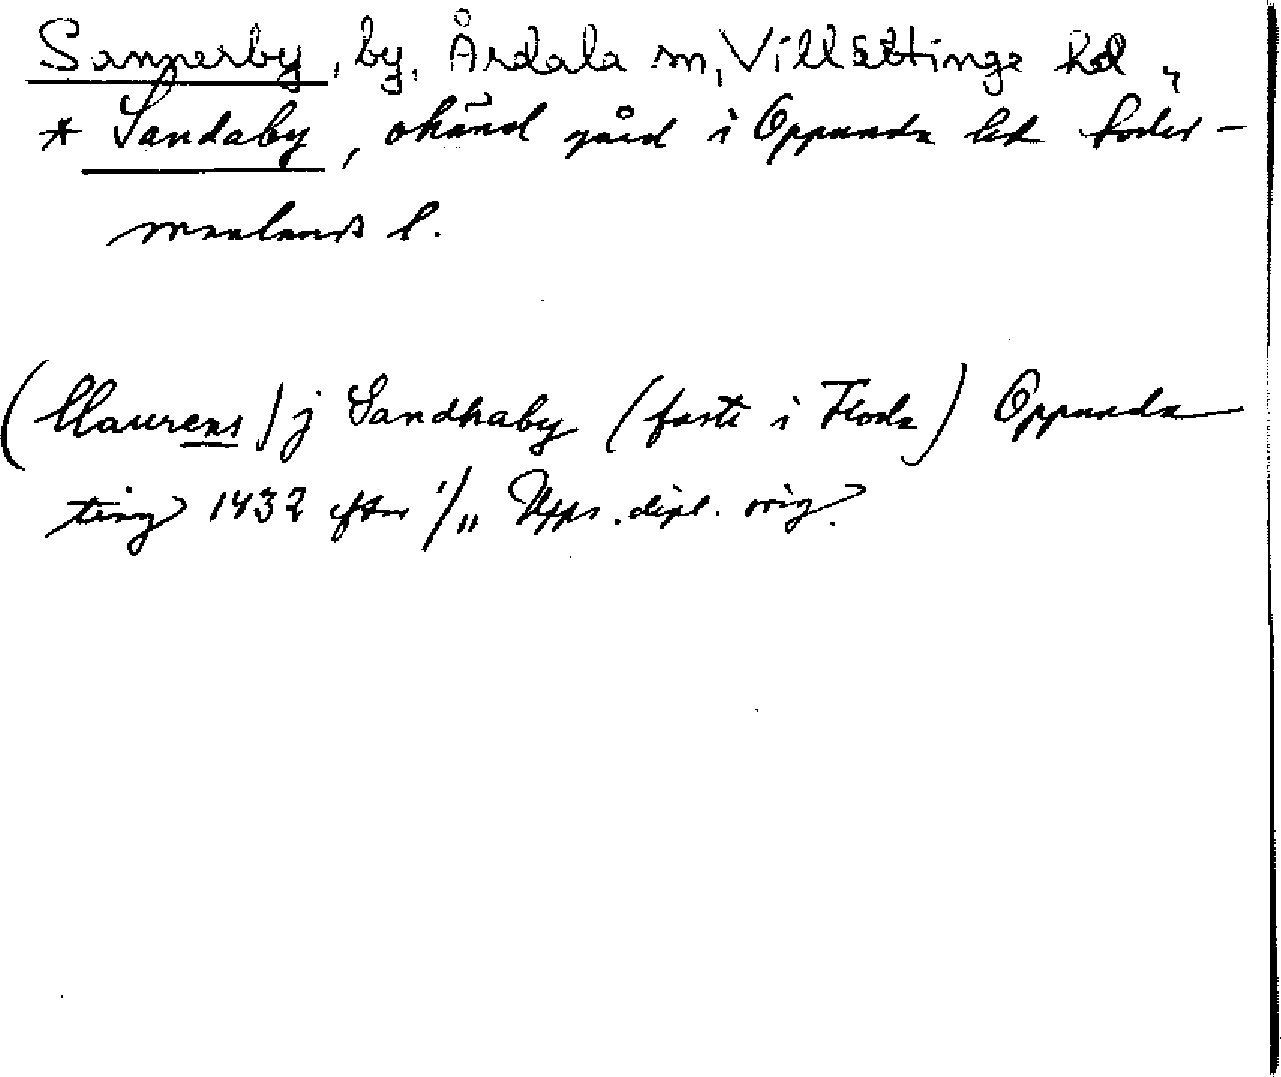 Sannerby, by, Årdala sn, Villåttinge hd,
* Sandaby, okänd gård i Oppunda hd Söder-
manlands l.
(Laurens) j Sandhaby (faste i Floda) Oppunda
ting 1432 efter 1/11 Upps. dipl. orig.